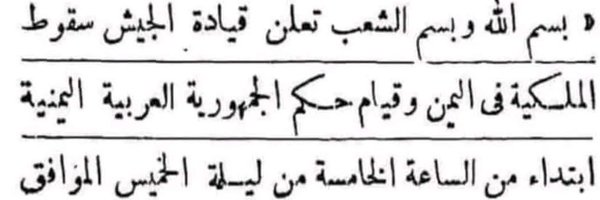 « بسم الله وبسم الشعب تعلن قيادة الجيش سقوط
الملكية فى اليمن وقيام حكم الجمهورية العربية اليمنية
ابتداء من الساعة الخامسة من ليلة الخميس الموافق